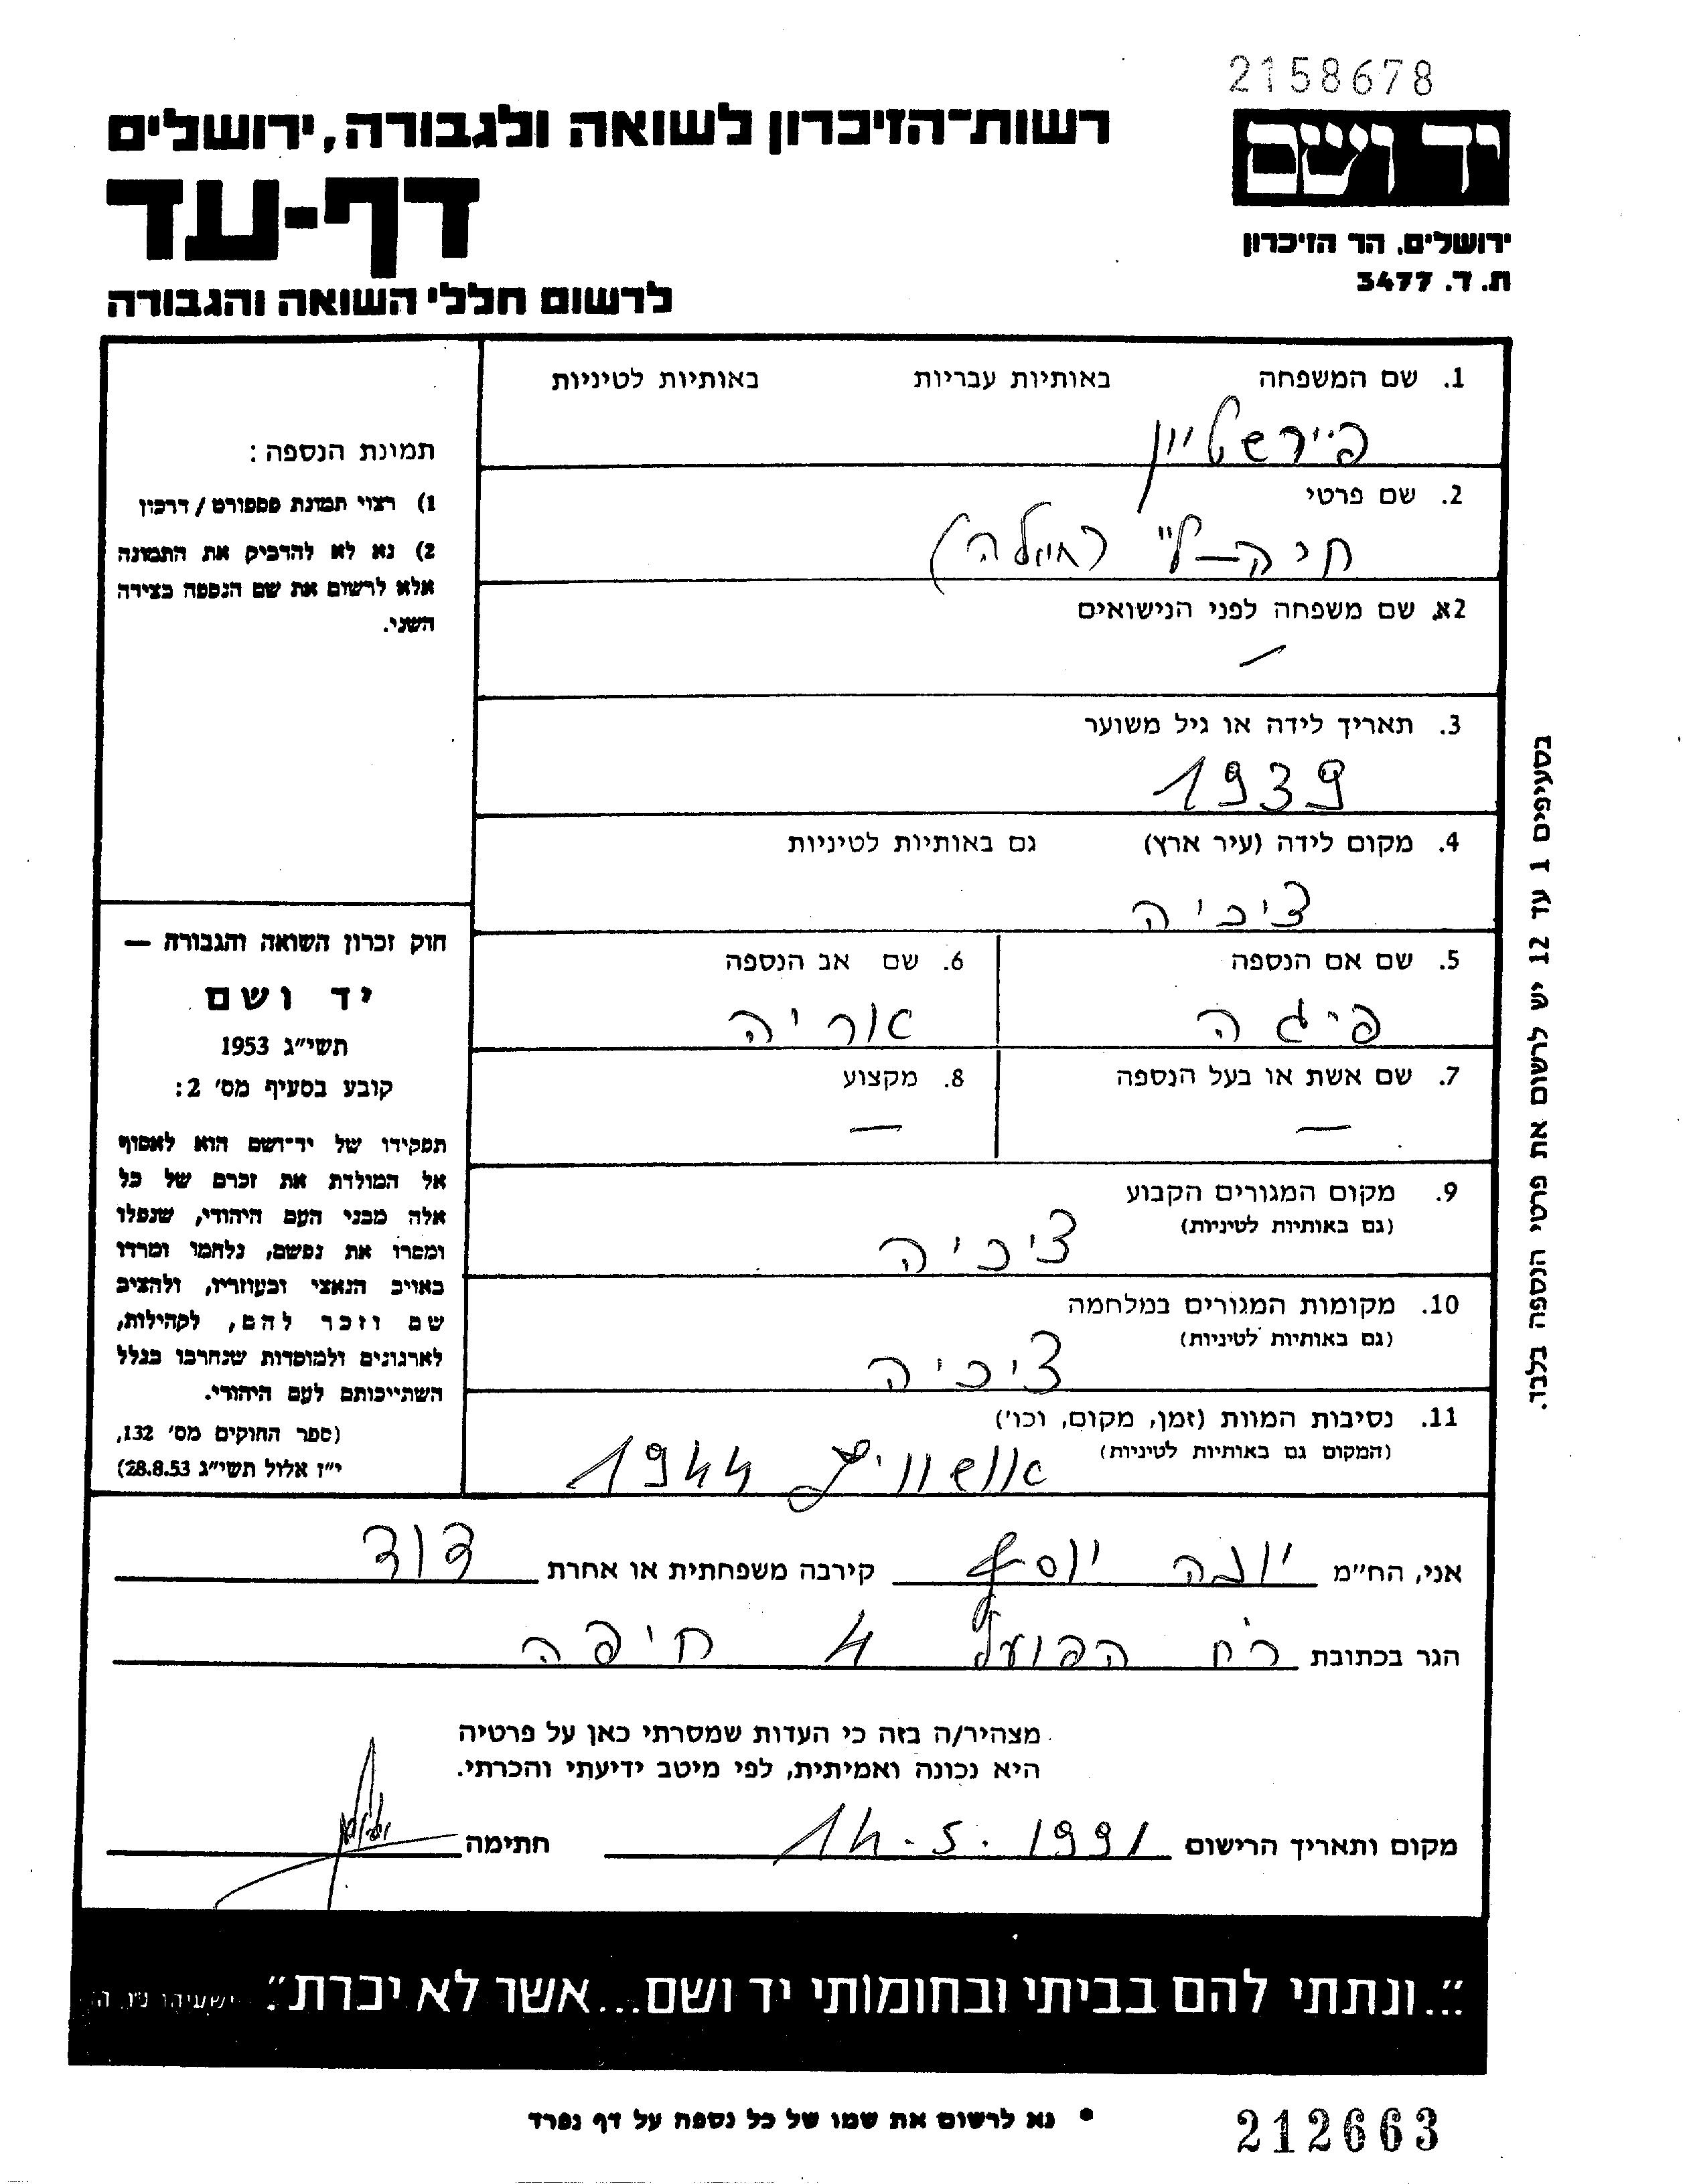 2158678
רשות־הזיכרון לשואה ולגבורה, ירושלים
יד ושם
דף-עד
ירושלים, הר הזיכרון
ת. ד. 3477
לרשום חללי השואה והגבורה
1. שם המשפחה באותיות עבריות באותיות לטיניות
פיירשטיין
2. שם פרטי
2א. שם משפחה לפני הנישואים
—
3. תאריך לידה או גיל משוער
1939
4. מקום לידה (עיר ארץ) גם באותיות לטיניות
צ'כיה
5. שם אם הנספה
פיגה
6. שם אב הנספה
אריה
7. שם אשת או בעל הנספה
—
8. מקצוע
—
9. מקום המגורים הקבוע
(גם באותיות לטיניות)
צ'כיה
10. מקומות המגורים במלחמה
(גם באותיות לטיניות)
צ'כיה
11. נסיבות המוות (זמן, מקום, וכו')
(המקום גם באותיות לטיניות)
אושוויץ 1944
תמונת הנספה:
1) רצוי תמונת פספורט / דרכון
2) נא לא להדביק את התמונה
אלא לרשום את שם הנספה בצידה
השני.
חוק זכרון השואה והגבורה —
יד ושם
תשי״ג 1953
קובע בסעיף מס' 2:
תפקידו של יד־ושם הוא לאסוף
אל המולדת את זכרם של כל
אלה מבני העם היהודי, שנפלו
ומסרו את נפשם, נלחמו ומרדו
באויב הנאצי ובעוזריו, ולהציב
שם וזכר להם, לקהילות,
לארגונים ולמוסדות שנחרבו בגלל
השתייכותם לעם היהודי.
(ספר החוקים מס' 132,
י״ז אלול תשי״ג 28.8.53)
בסעיפים 1 עד 12 יש לרשום את פרטי הנספה בלבד.
אני, הח״מ יונה יוסף קירבה משפחתית או אחרת דוד
הגר בכתובת רח הפועל 4 חיפה
מצהיר/ה בזה כי העדות שמסרתי כאן על פרטיה
היא נכונה ואמיתית, לפי מיטב ידיעתי והכרתי.
מקום ותאריך הרישום 14.5.1991 חתימה
"...ונתתי להם בביתי ובחומותי יד ושם...אשר לא יכרת". ישעיהו נ״ו, ה׳
* נא לרשום את שמו של כל נספה על דף נפרד
212663